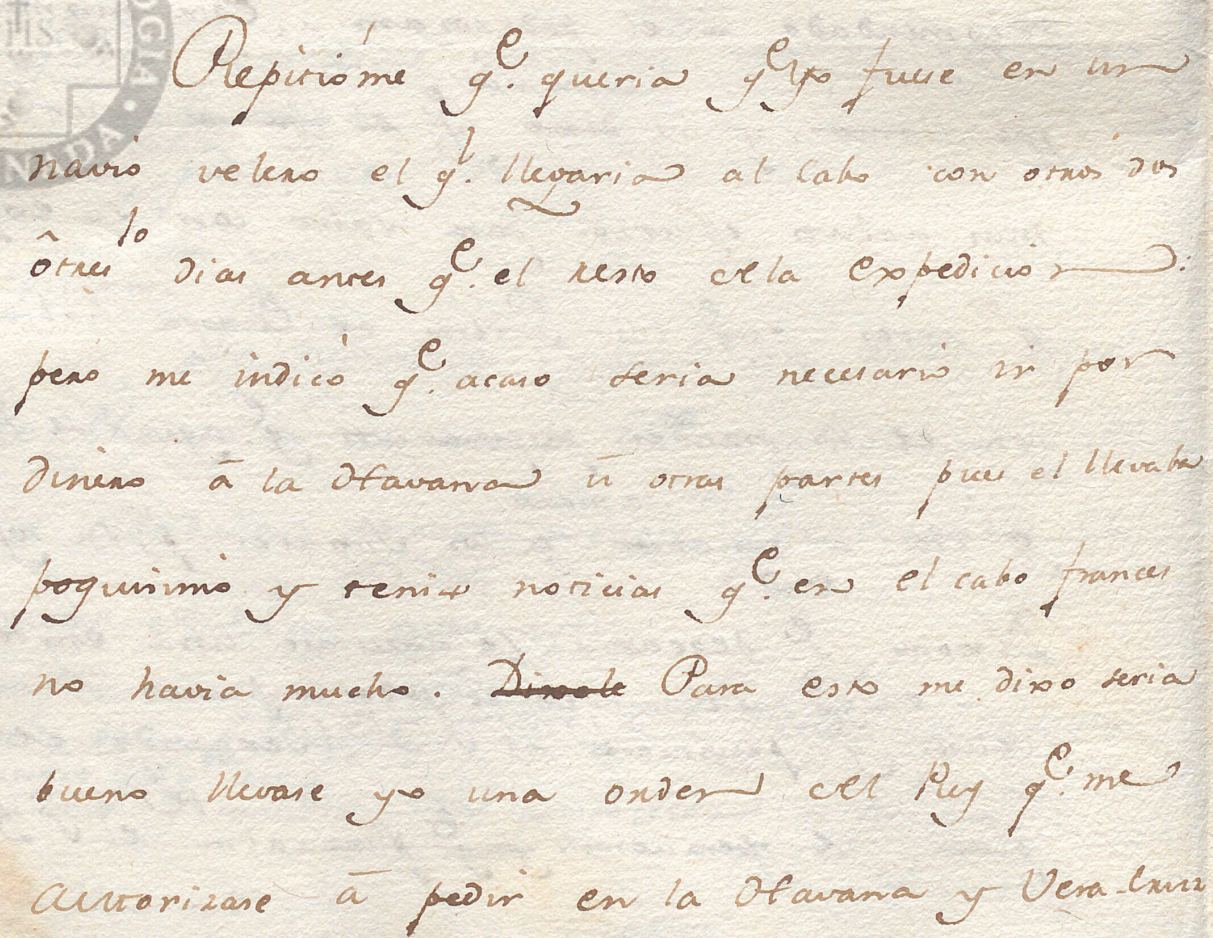 Repitióme q.e queria q.e yo fuese en un
navio velero el q.l llegaria al Cabo con otros dos
ô tres lo dias antes q.e el resto de la expedicion:
pero me indicó q.e acaso seria necesario ir por
dinero ā la Havana ū otras partes pues el llevaba
poquisimo y tenia noticias q.e en el cabo frances
no havia mucho. Dixole Para esto me dixo seria
bueno llevase yo una orden del Rey q.e me
autorizase ā pedir en la Havana y Vera-Cruz
OGIA · NADA